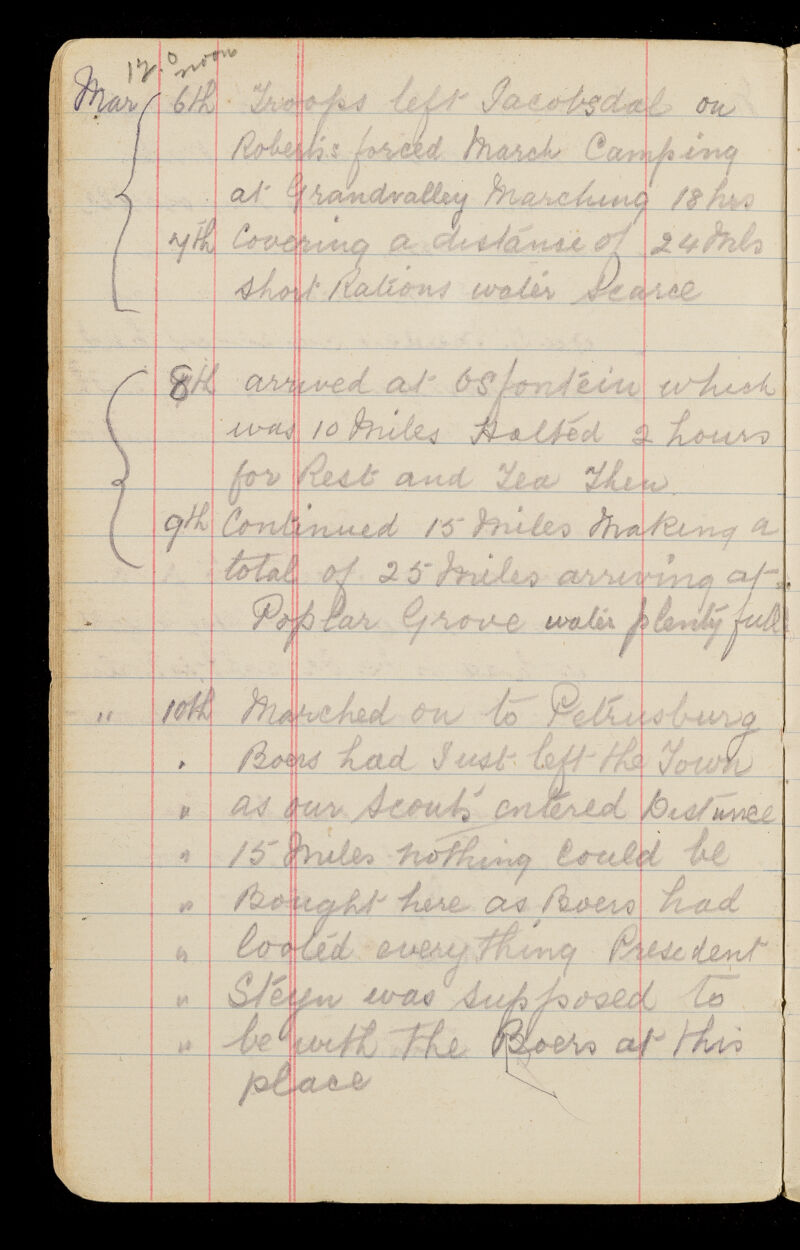 12.0 noon
Mar 6th Troops left Jacobsdal on
Roberts forced March Camping
at Grandvalley Marching 18 hrs
7th Covering a distanse of 24 Mls
short Rations water Scarce
8th arrived at Osfontein which
was 10 Miles Halted 2 hours
for Rest and Tea Then
9th Continued 15 Miles Making a
total of 25 Miles arriving at
Poplar Grove water plenty full
" 10th Marched on to Petrusburg
. Boers had Just left the Town
" as our Scouts entered Distance
" 15 Miles nothing Could be
" Bought here as Boers had
" looted everything Presedent
" Steyn was supposed to
" be with the Boers at this
place